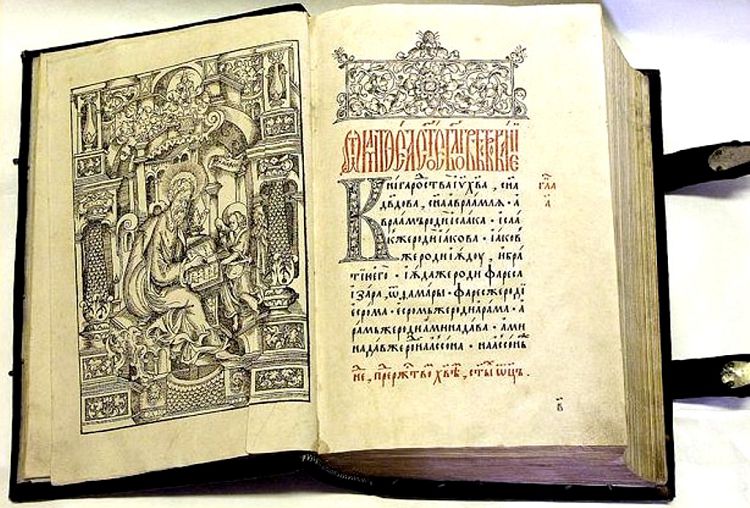 Книга рⷭ҇тва і҆у҃ хв҃а, сн҃а
гла
дв҃дова, сн҃а авраамля · а
а҃
враамъ роди ісаака · ісаа
къ же роди іакова · іаков
же роди іюдоу, и бра
тїю его · іюда же роди фареса
і зара, ѿ ѳамары · фаресъ же роди
есрома · есромъ же роди арама · а
рамъ же роди аминадава · ами
надавъ же роⷣ наассона · наассонъ
в҃